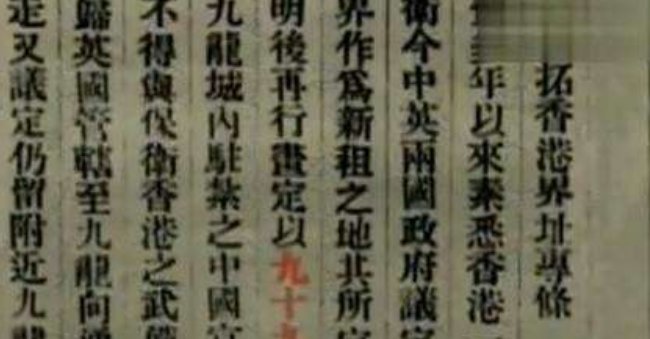 拓香港界址專條
年以來素悉香港一
衛今中英兩國政府議定
界作爲新租之地其所定
明後再行畫定以九十九
九龍城內駐紮之中國官
不得與保衛香港之武備
歸英國管轄至九龍向通
走又議定仍留附近九龍